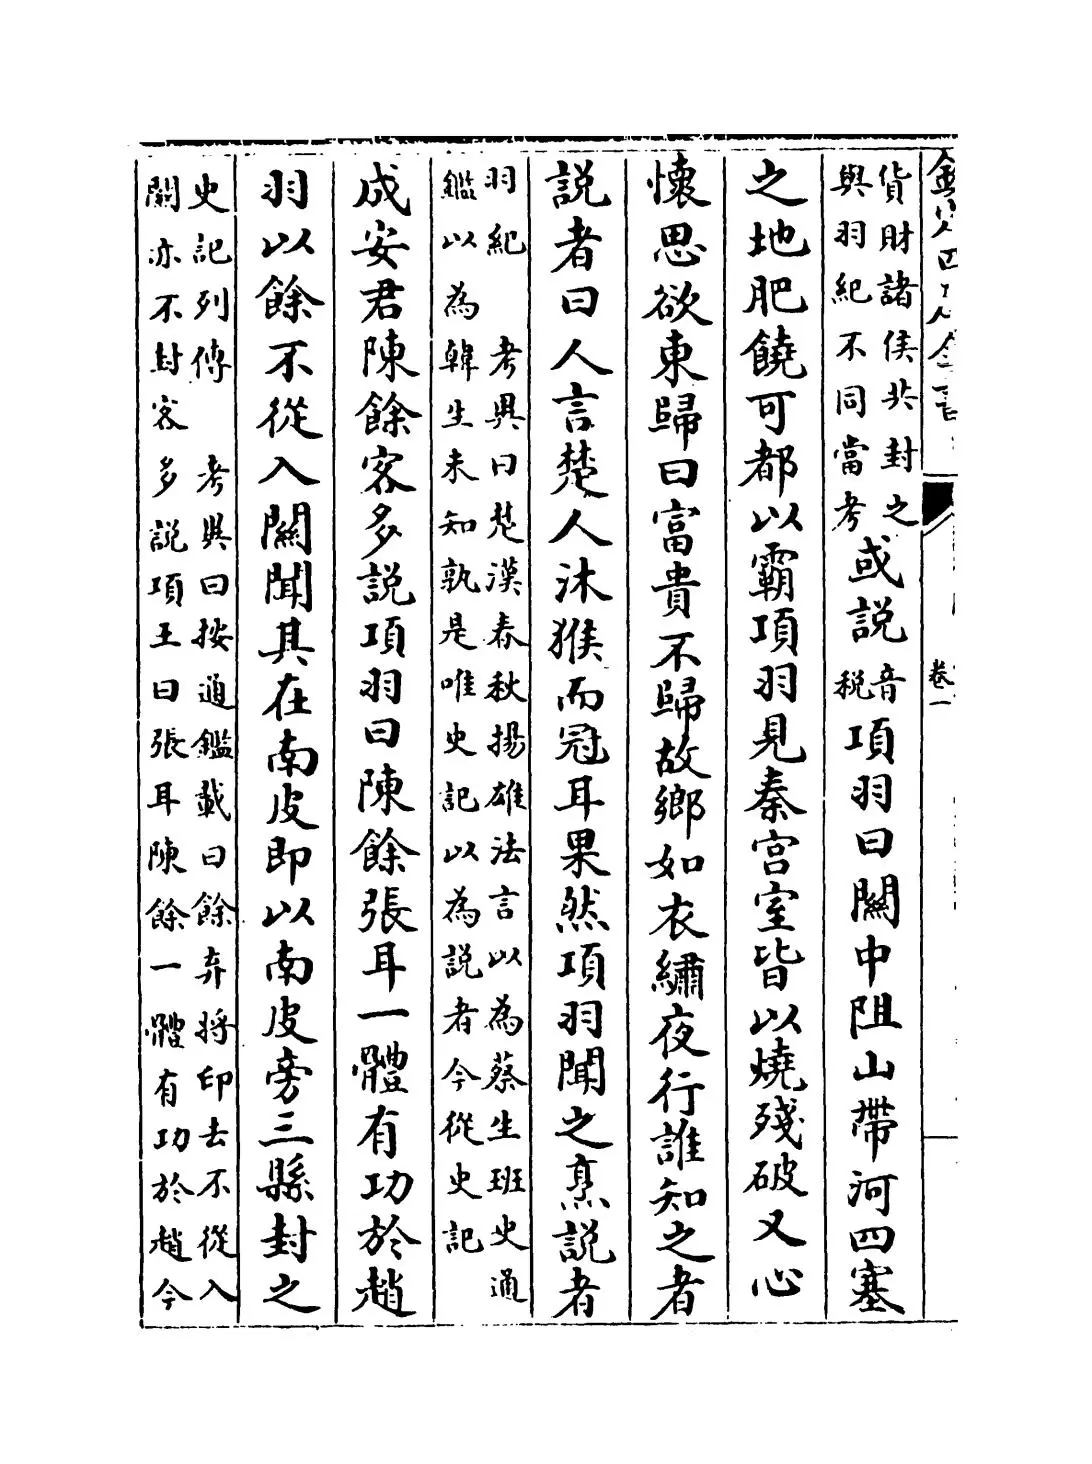 欽定四庫全書
卷一
貨財諸侯共封之
與羽紀不同當考
或説
音
税
項羽曰關中阻山帶河四塞
之地肥饒可都以霸項羽見秦宫室皆以燒殘破又心
懷思欲東歸曰富貴不歸故鄉如衣繡夜行誰知之者
説者曰人言楚人沐猴而冠耳果然項羽聞之烹説者
羽紀　考異曰楚漢春秋揚雄法言以為蔡生班史通
鑑以為韓生未知孰是唯史記以為説者今從史記
成安君陳餘客多説項羽曰陳餘張耳一體有功於趙
羽以餘不從入關聞其在南皮即以南皮旁三縣封之
史記列傳　考異曰按通鑑載曰餘弃將印去不從入
關亦不封客多説項王曰張耳陳餘一體有功於趙今